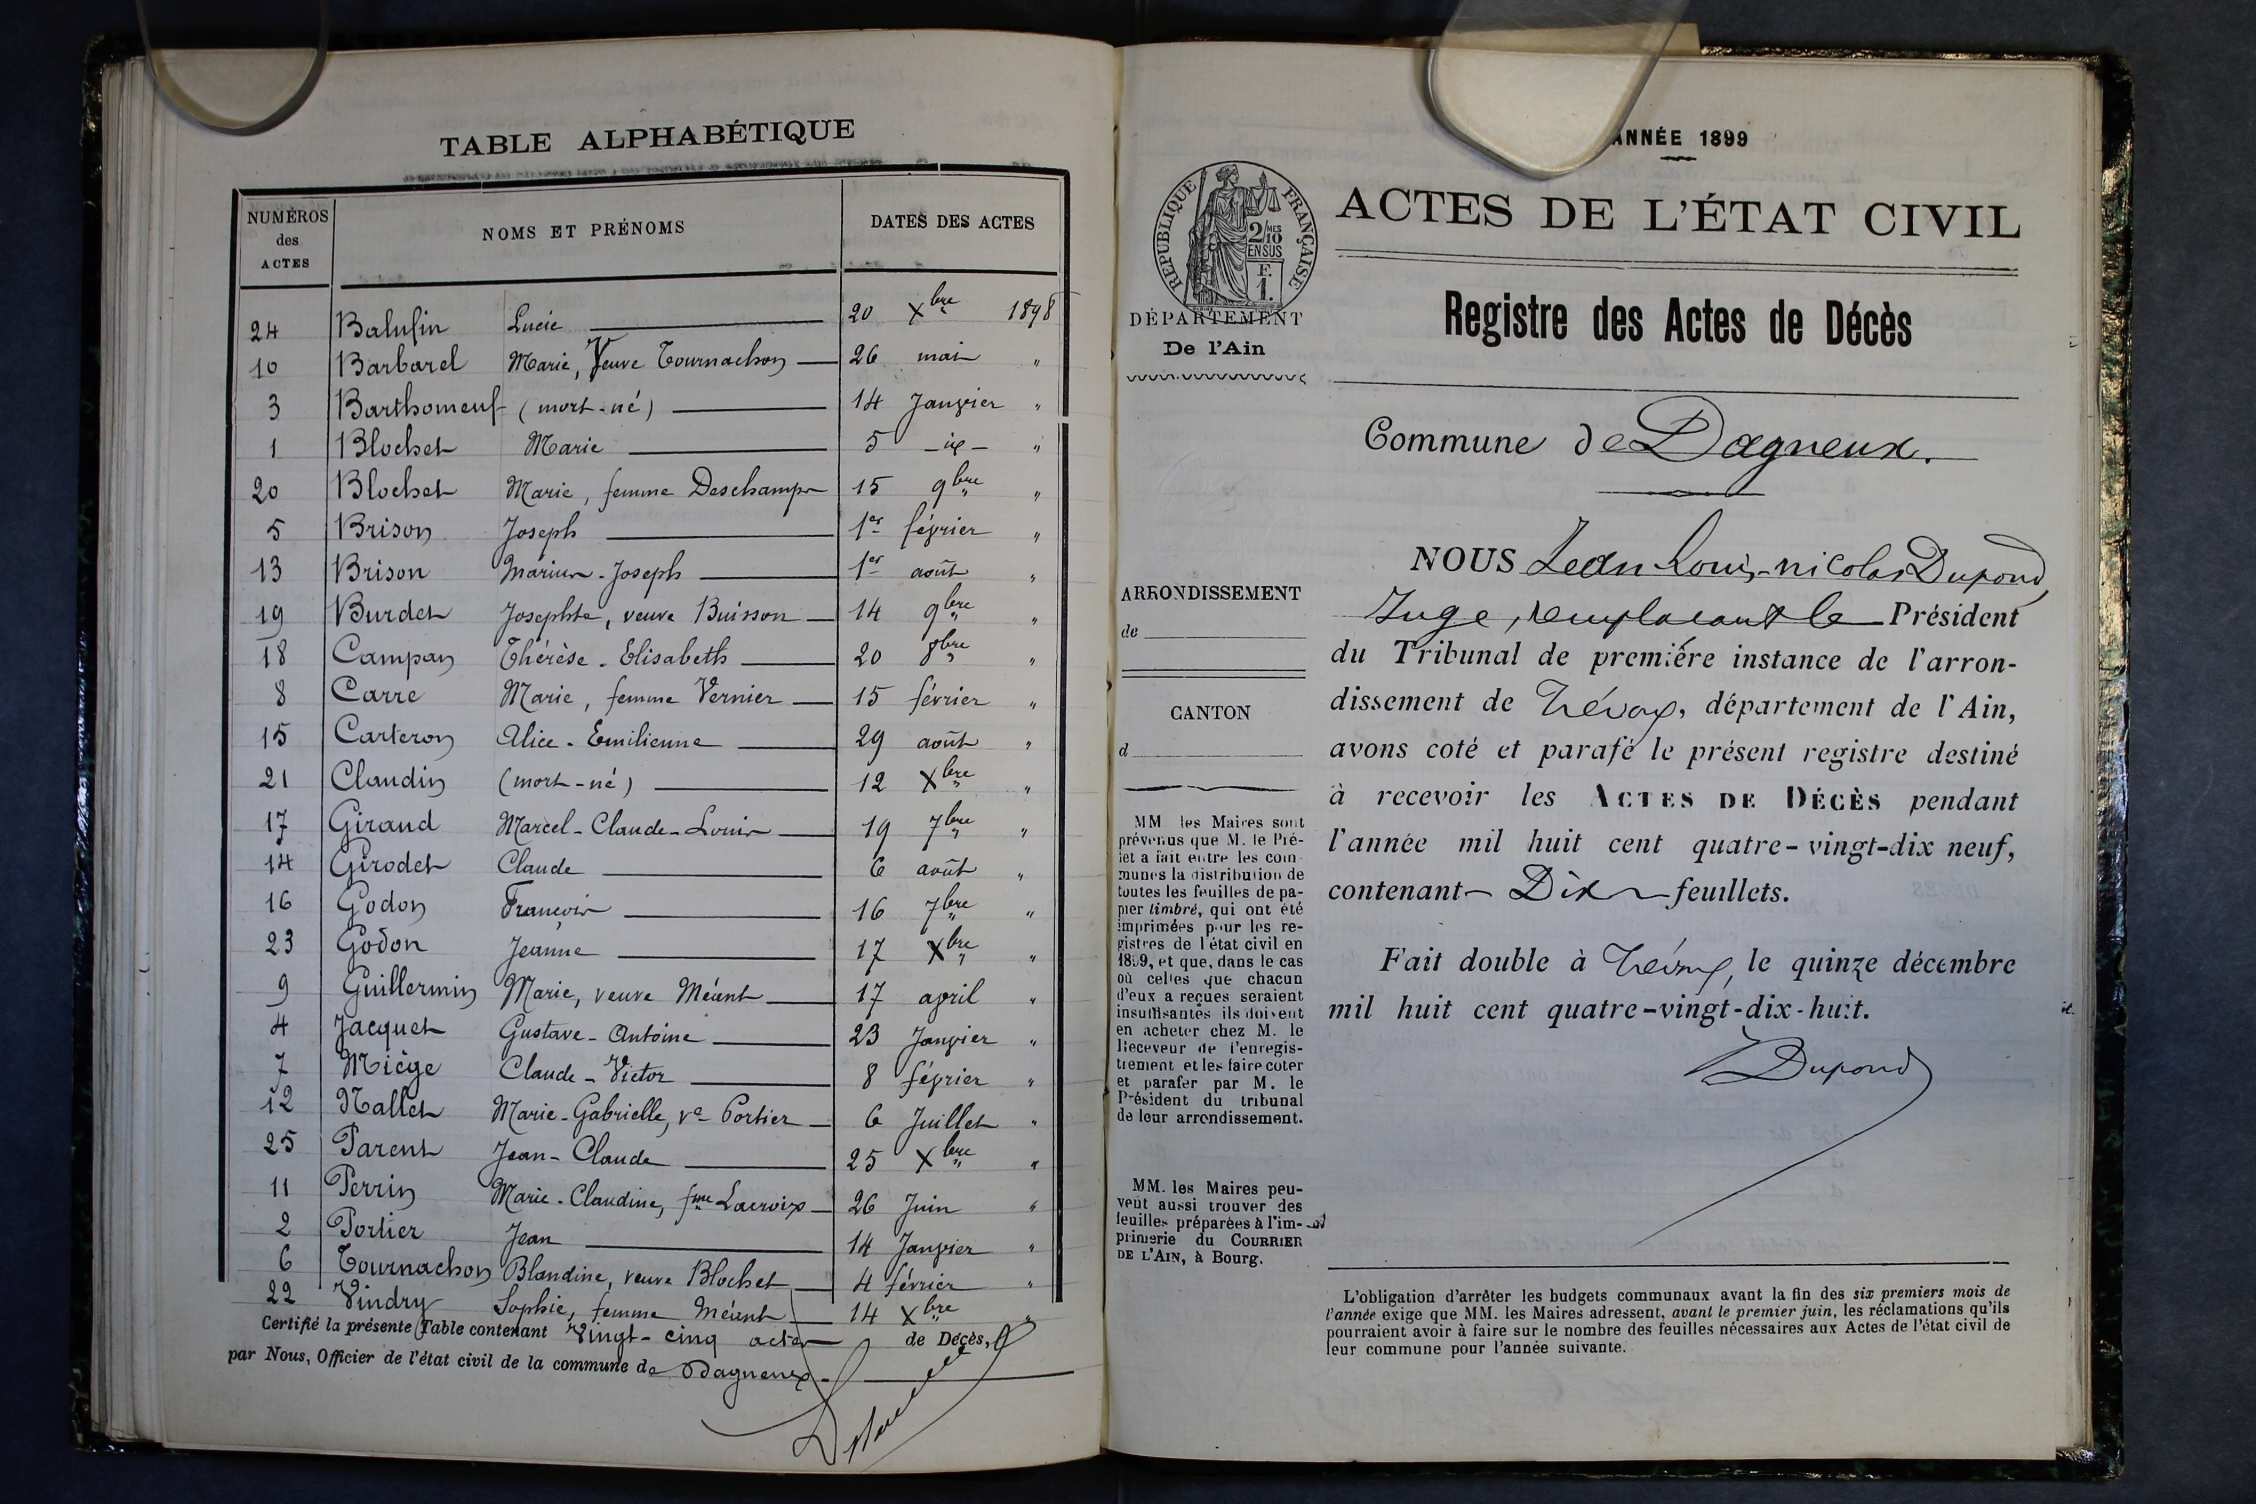 TABLE ALPHABÉTIQUE
NUMÉROS des ACTES NOMS ET PRÉNOMS DATES DES ACTES
24 Balufin Lucie 20 Xbre 1898
10 Barbarel Marie, Veuve Tournachon 26 mai "
3 Barthomeuf (mort-né) 14 Janvier "
1 Blochet Marie 5 -id- "
20 Blochet Marie, femme Deschamps 15 9bre "
5 Brison Joseph 1er février "
13 Brison Marius-Joseph 1er août "
19 Burdet Josephte, veuve Buisson 14 9bre "
18 Campan Thérèse-Elisabeth 20 8bre "
8 Carre Marie, femme Vernier 15 février "
15 Carteron Alice-Emilienne 29 août "
21 Claudin (mort-né) 12 Xbre "
17 Giraud Marcel-Claude-Louis 19 7bre "
14 Girodet Claude 6 août "
16 Godon François 16 7bre "
23 Godon Jeanne 17 Xbre "
9 Guillermin Marie, veuve Méant 17 avril "
4 Jacquet Gustave-Antoine 23 Janvier "
7 Miège Claude-Victor 8 février "
12 Nallet Marie-Gabrielle, ve Portier 6 Juillet "
25 Parent Jean-Claude 25 Xbre "
11 Perrin Marie-Claudine, fme Lacroix 26 Juin "
2 Portier Jean 14 Janvier "
6 Tournachon Blandine, veuve Blochet 4 février "
22 Vindry Sophie, femme Méant 14 Xbre "
Certifié la présente Table contenant Vingt-cinq actes de Décès,
par Nous, Officier de l'état civil de la commune de Dagneux.
ANNÉE 1899
RÉPUBLIQUE FRANÇAISE
2/10 MES
EN SUS
F.
1.
ACTES DE L'ÉTAT CIVIL
DÉPARTEMENT
De l'Ain
Registre des Actes de Décès
Commune de Dagneux.
ARRONDISSEMENT
de
CANTON
d
MM les Maires sont
prévenus que M. le Pré-
fet a fait entre les com-
munes la distribution de
toutes les feuilles de pa-
pier timbré, qui ont été
imprimées pour les re-
gistres de l'état civil en
1899, et que, dans le cas
où celles que chacun
d'eux a reçues seraient
insuffisantes ils doivent
en acheter chez M. le
Receveur de l'enregis-
trement et les faire coter
et parafer par M. le
Président du tribunal
de leur arrondissement.
MM. les Maires peu-
vent aussi trouver des
feuilles préparées à l'im-
primerie du COURRIER
DE L'AIN, à Bourg.
NOUS Jean Louis-nicolas Dupond,
Juge, remplacant le Président
du Tribunal de premiére instance de l'arron-
dissement de Trévoux, département de l'Ain,
avons coté et parafé le présent registre destiné
à recevoir les ACTES DE DÉCÈS pendant
l'année mil huit cent quatre-vingt-dix neuf,
contenant Dix feuillets.
Fait double à Trévoux, le quinze décembre
mil huit cent quatre-vingt-dix-huit.
Dupond
L'obligation d'arrêter les budgets communaux avant la fin des six premiers mois de
l'année exige que MM. les Maires adressent, avant le premier juin, les réclamations qu'ils
pourraient avoir à faire sur le nombre des feuilles nécessaires aux Actes de l'état civil de
leur commune pour l'année suivante.